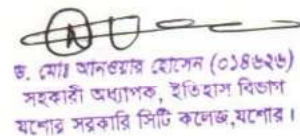 ড. মোঃ আনওয়ার হোসেন (০১৪৬২৬)
সহকারী অধ্যাপক, ইতিহাস বিভাগ
যশোর সরকারি সিটি কলেজ,যশোর।